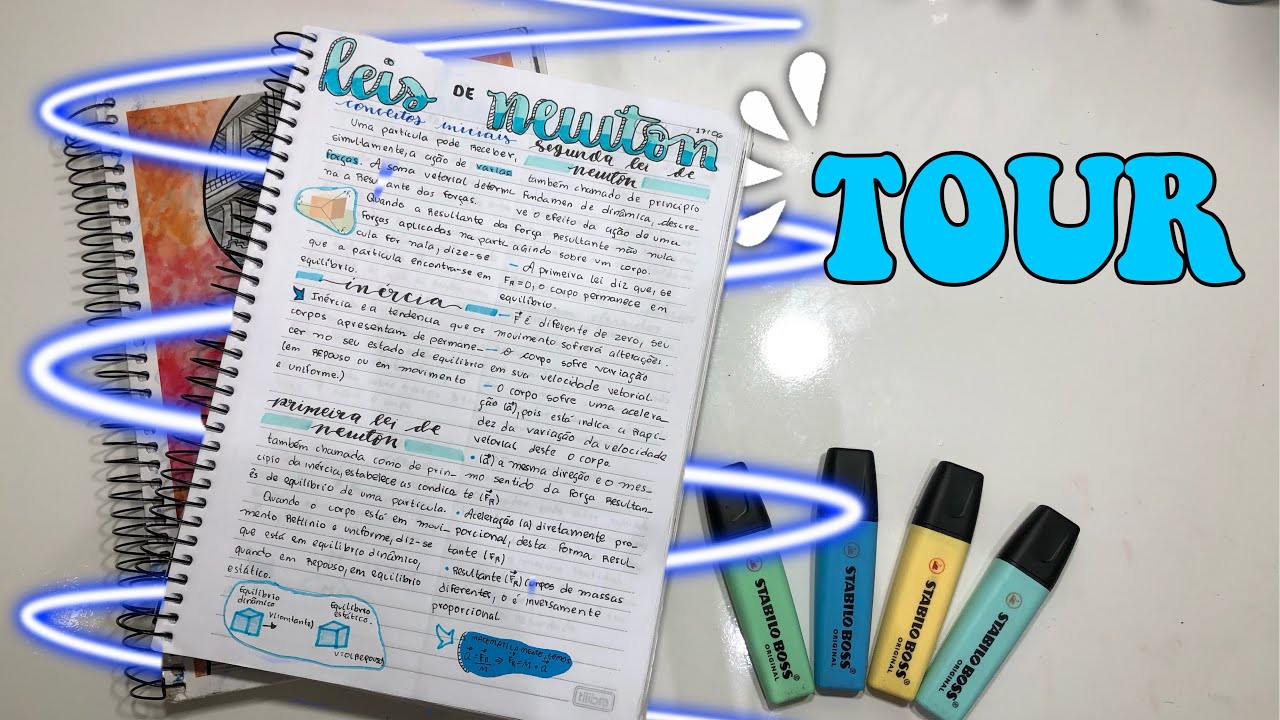 Leis DE Newton
17/06
conceitos iniciais
Uma partícula pode receber,
simultamente, a ação de varias
forças. A soma vetorial determi
na a Resultante das forças.
Quando a Resultante da
forças aplicadas na parti
for nula, dize-se
que a partícula encontra-se em
equilíbrio.
inércia
Inércia é a tendência que os
corpos apresentam de permane-
cer no seu estado de equilíbrio em
(em Repouso ou em movimento
e uniforme.)
primeira lei de
newton
também chamada como de prin-
cípio da inércia, estabelece as condiçõ
ẽs de equilíbrio de uma partícula.
Quando o corpo está em movi-
mento Retlínio e uniforme, diz-se
que está em equilíbrio dinâmico,
quando em Repouso, em equílibrio
estático.
Equilíbrio
dinâmico
v(constante)
Equilíbrio
estático.
v=0(Repouso)
segunda lei de
newton
também chamado de princípio
Fundamen de dinâmica, descre-
ve o efeito da ação de uma
força Resultante não nula
agindo sobre um corpo.
— A primeira lei diz que, se
FR=0, o corpo permanece em
equilíbrio.
— F é diferente de zero, seu
movimento sofrerá alterações.
— O corpo sofre variação
sua velocidade vetorial.
— O corpo sofre uma acelera
ção (a), pois está indica a Rapi
dez da variação da velocidade
vetorial deste o corp.
• (a) a mesma direção e o mes-
mo sentido da força Resultan-
te (FR)
• Aceleração (a) diretamente pro-
porcional, desta forma Resul
tante (FR)
• Resultante (FR) corpos de massas
diferentes, o é inversamente
proporcional
matematicamente, temos
a = FR/M ⇒ FR = M . a
tilibra
TOUR
STABILO BOSS
ORIGINAL
STABILO BOSS
ORIGINAL
STABILO BOSS
ORIGINAL
STABILO BOSS
ORIGINAL